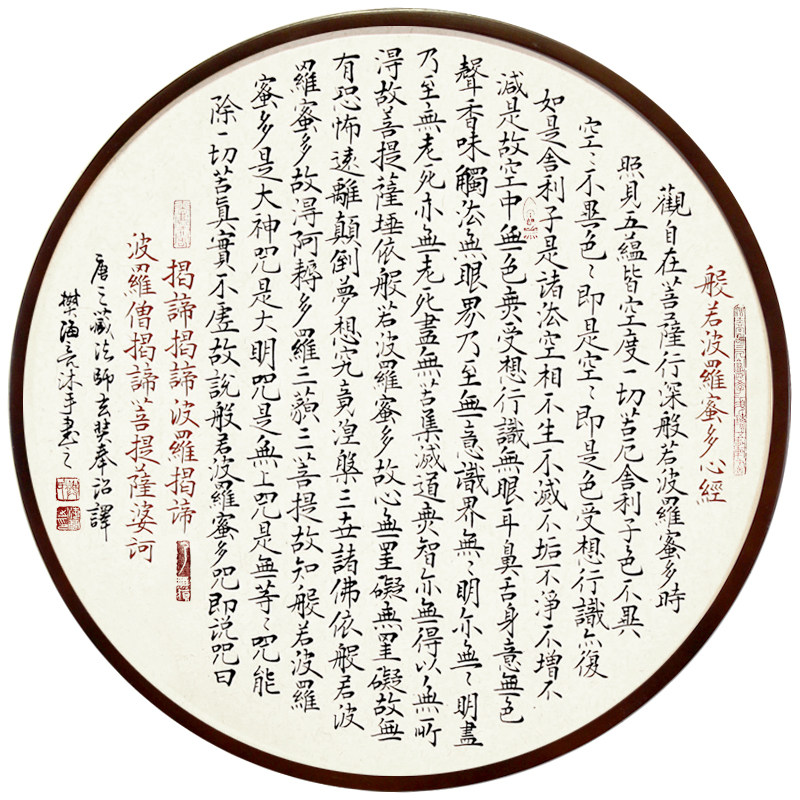 般若波羅蜜多心經
觀自在菩薩行深般若波羅蜜多時
照見五蘊皆空度一切苦厄舍利子色不異
空〻不異色〻即是空〻即是色受想行識亦復
如是舍利子是諸法空相不生不滅不垢不淨不增不
減是故空中無色無受想行識無眼耳鼻舌身意無色
聲香味觸法無眼界乃至無意識界無〻明亦無〻明盡
乃至無老死亦無老死盡無苦集滅道無智亦無得以無所
得故菩提薩埵依般若波羅蜜多故心無罣礙無罣礙故無
有恐怖遠離顛倒夢想究竟涅槃三世諸佛依般若波
羅蜜多故得阿耨多羅三藐三菩提故知般若波羅
蜜多是大神咒是大明咒是無上咒是無等〻咒能
除一切苦真實不虛故說般若波羅蜜多咒即说咒曰
揭諦揭諦波羅揭諦
波羅僧揭諦菩提薩婆訶
唐三藏法師玄奘奉詔譯
樊海亮沐手書之